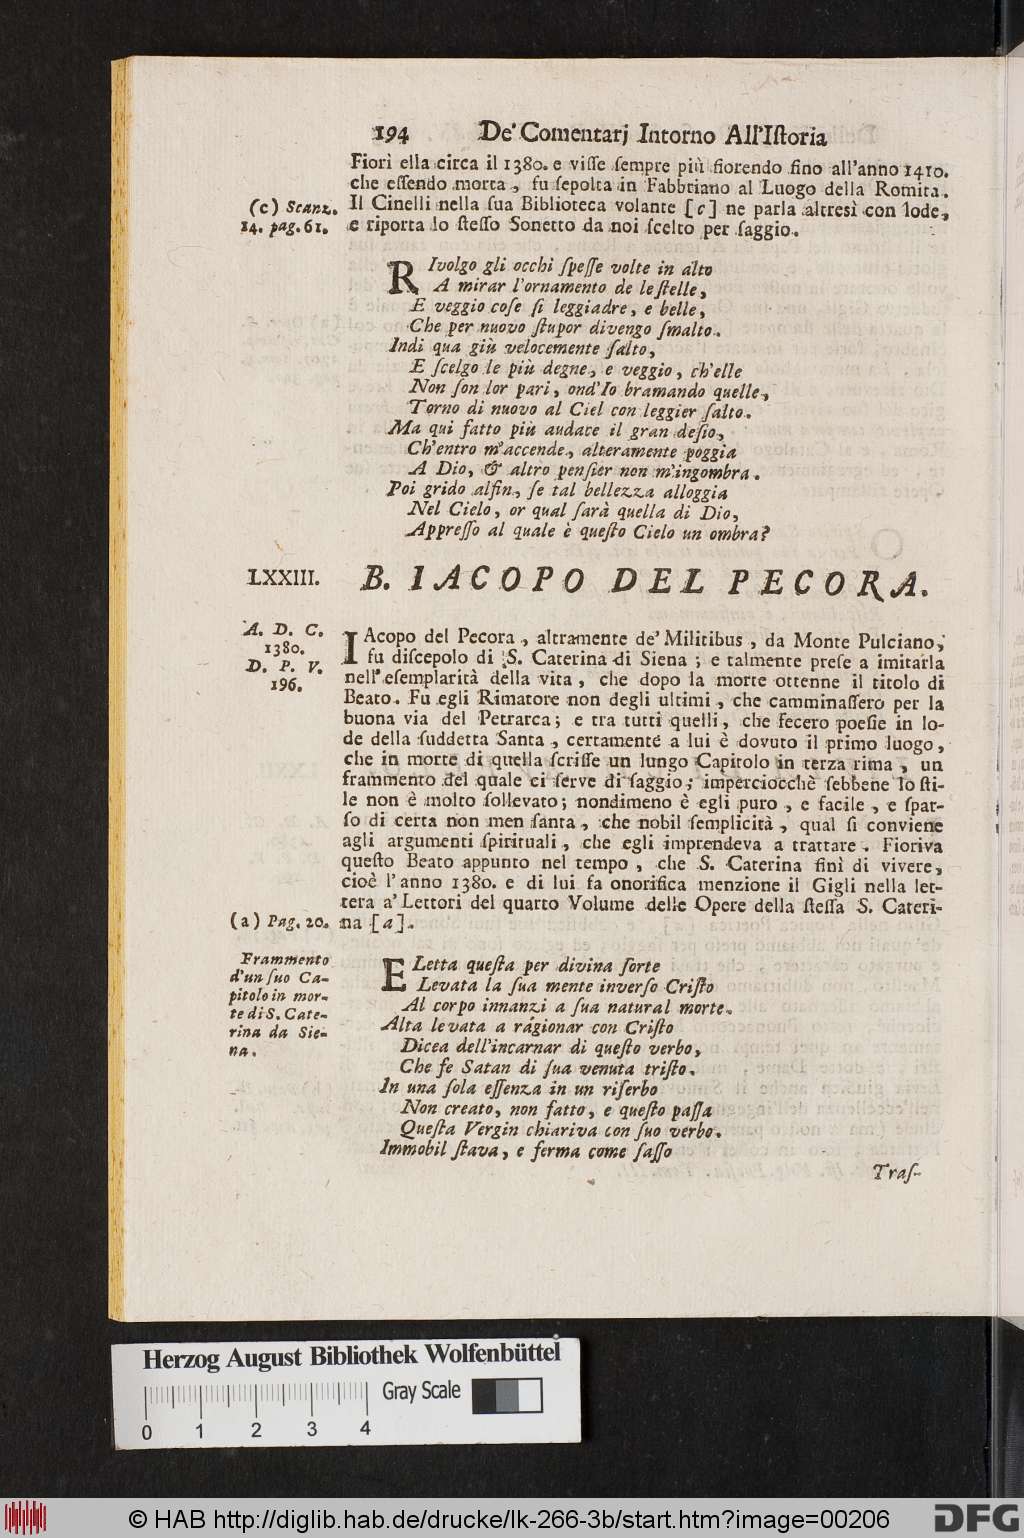 194 De' Comentarj Intorno All'Iſtoria
Fiorì ella circa il 1380. e viſſe ſempre più fiorendo fino all'anno 1410.
che eſſendo morta, fu ſepolta in Fabbriano al Luogo della Romita.
(c) Scanz. Il Cinelli nella ſua Biblioteca volante [c] ne parla altresì con lode,
14. pag. 61. e riporta lo ſteſſo Sonetto da noi ſcelto per ſaggio.
RIvolgo gli occhi ſpeſſe volte in alto
A mirar l'ornamento de le ſtelle,
E veggio coſe ſi leggiadre, e belle,
Che per nuovo ſtupor divengo ſmalto.
Indi qua giù velocemente ſalto,
E ſcelgo le più degne, e veggio, ch'elle
Non ſon lor pari, ond'Io bramando quelle,
Torno di nuovo al Ciel con leggier ſalto.
Ma qui fatto più audace il gran deſio,
Ch'entro m'accende, alteramente poggia
A Dio, & altro penſier non m'ingombra.
Poi grido alfin, ſe tal bellezza alloggia
Nel Cielo, or qual ſarà quella di Dio,
Appreſſo al quale è queſto Cielo un ombra?
LXXIII. B. IACOPO DEL PECORA.
A. D. C.
1380.
D. P. V.
196.
IAcopo del Pecora, altramente de' Militibus, da Monte Pulciano,
fu diſcepolo di S. Caterina di Siena; e talmente preſe a imitarla
nell'eſemplarità della vita, che dopo la morte ottenne il titolo di
Beato. Fu egli Rimatore non degli ultimi, che camminaſſero per la
buona via del Petrarca; e tra tutti quelli, che fecero poeſie in lo-
de della ſuddetta Santa, certamente a lui è dovuto il primo luogo,
che in morte di quella ſcriſſe un lungo Capitolo in terza rima, un
frammento del quale ci ſerve di ſaggio; imperciocchè ſebbene lo ſti-
le non è molto ſollevato; nondimeno è egli puro, e facile, e ſpar-
ſo di certa non men ſanta, che nobil ſemplicità, qual ſi conviene
agli argumenti ſpirituali, che egli imprendeva a trattare. Fioriva
queſto Beato appunto nel tempo, che S. Caterina finì di vivere,
cioè l'anno 1380. e di lui fa onorifica menzione il Gigli nella let-
tera a' Lettori del quarto Volume delle Opere della ſteſſa S. Cateri-
(a) Pag. 20. na [a].
Frammento
d'un ſuo Ca-
pitolo in mor-
te di S. Cate-
rina da Sie-
na.
ELetta queſta per divina ſorte
Levata la ſua mente inverſo Criſto
Al corpo innanzi a ſua natural morte.
Alta levata a ragionar con Criſto
Dicea dell'incarnar di queſto verbo,
Che fe Satan di ſua venuta triſto.
In una ſola eſſenza in un riſerbo
Non creato, non fatto, e queſto paſſa
Queſta Vergin chiariva con ſuo verbo.
Immobil ſtava, e ferma come ſaſſo
Traſ-
Herzog August Bibliothek Wolfenbüttel
Gray Scale
0 1 2 3 4
© HAB http://diglib.hab.de/drucke/lk-266-3b/start.htm?image=00206
DFG